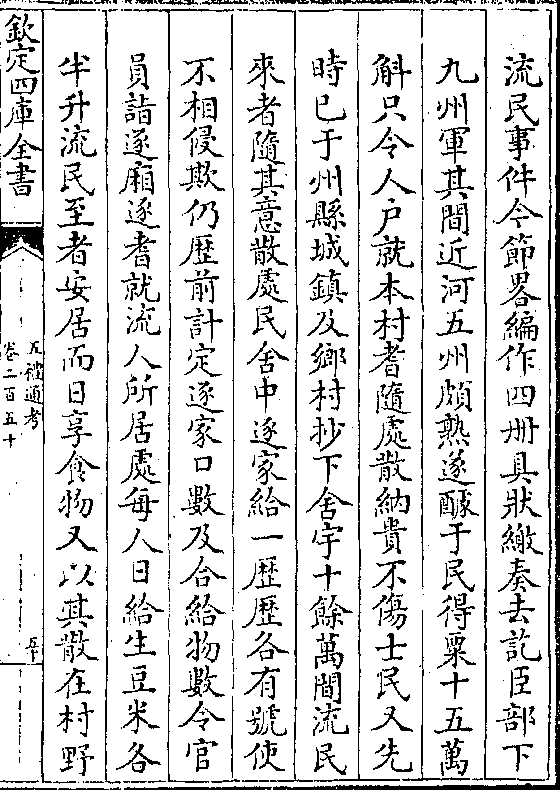 流民事件今節畧編作四册具狀繳奏去訖臣部下
九州軍其間近河五州頗熟遂醵于民得粟十五萬
斛只令人户就本村耆隨處散納貴不傷士民又先
時已于州縣城鎮及鄉村抄下舍宇十餘萬間流民
來者隨其意散處民舍中逐家給一歴歴各有號使
不相侵欺仍歴前計定逐家口數及合給物數令官
員詣逐廂逐耆就流人所居處每人日給生豆米各
半升流民至者安居而日享食物又以其散在村野
欽定四庫全書
五禮通考
卷二百五十